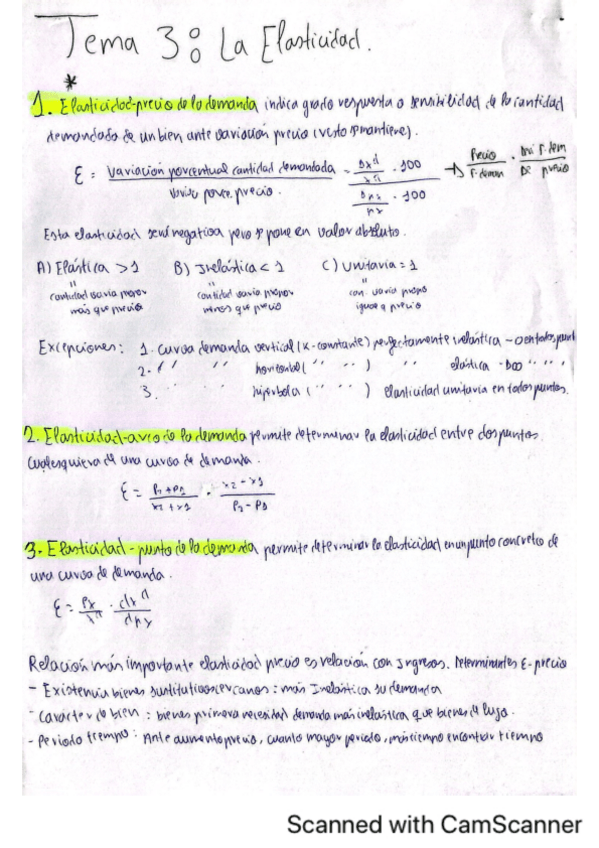 Tema 3: La Elasticidad.
*
1. Elasticidad-precio de la demanda indica grado respuesta o sensibilidad de la cantidad
demandada de un bien ante variación precio (resto se mantiene).
Ɛ = Variación porcentual cantidad demandada / variac porcen. precio. = Δx^d / x^d · 100 / Δpx / px · 100 → Precio / F. deman · F. dem / precio
Esta elasticidad será negativa pero se pone en valor absoluto.
A) Elástica > 1 B) Inelástica < 1 C) Unitaria = 1
" " "
cantidad varía propor cantidad varía propor can. varía propo
más que precio menos que precio igual a precio
Excepciones: 1. curva demanda vertical (x constante) perfectamente inelástica - 0 en todos punt
2. " " " horizontal ( " " ) " elástica - ∞ " " "
3. hipérbola ( " " ) elasticidad unitaria en todos puntos.
2. Elasticidad-arco de la demanda permite determinar la elasticidad entre dos puntos
cualesquiera de una curva de demanda.
Ɛ = P2+P1 / x2+x1 · x2-x1 / P2-P1
3. Elasticidad-punto de la demanda permite determinar la elasticidad en un punto concreto de
una curva de demanda.
Ɛ = Px / x^d · dx^d / dpx
Relación más importante elasticidad precio es relación con ingresos. Determinantes Ɛ-precio
- Existencia bienes sustitutivos cercanos: más Inelástica su demanda
- Carácter de bien: bienes primera necesidad demanda más inelástica que bienes de lujo.
- Periodo tiempo: Ante aumento precio, cuanto mayor periodo, más tiempo encontrar tiempo
Scanned with CamScanner